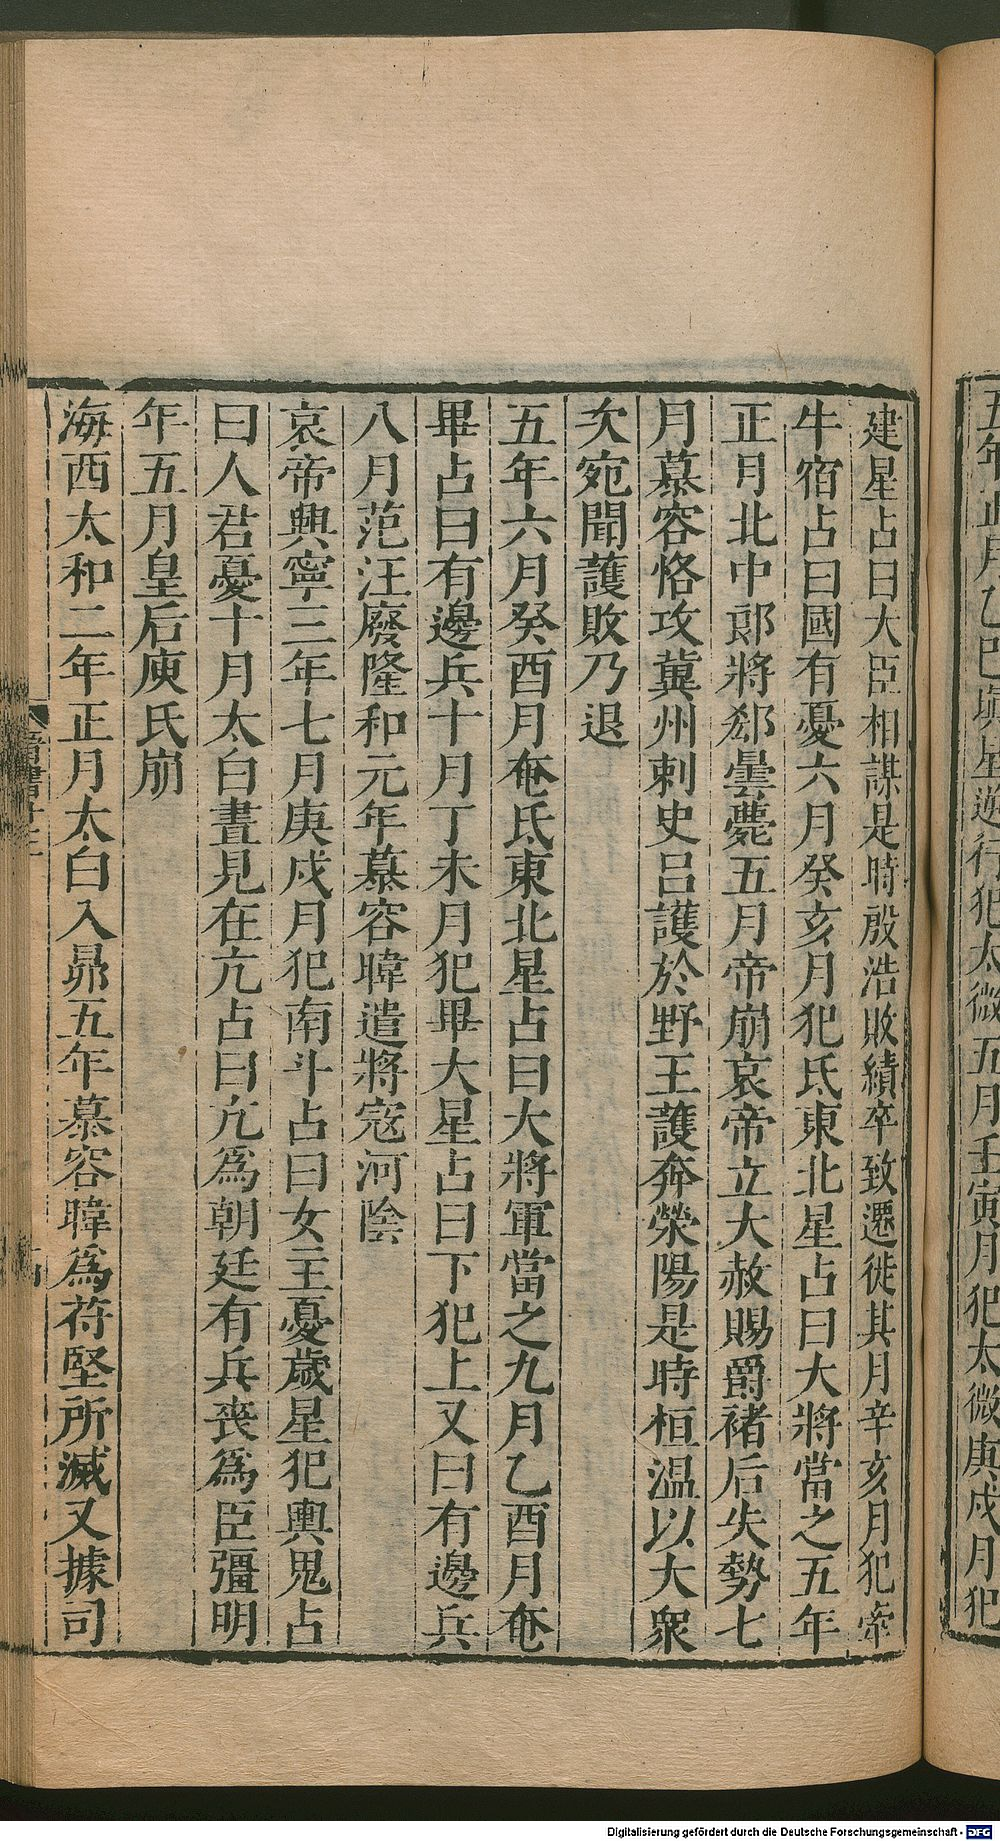 五年正月乙巳塡星逆行犯太微五月壬寅月犯太微庚戌月犯
建星占曰大臣相謀是時殷浩敗績卒致遷徙其月辛亥月犯牽
牛宿占曰國有憂六月癸亥月犯氐東北星占曰大將當之五年
正月北中郎將郄曇薨五月帝崩哀帝立大赦賜爵褚后失勢七
月慕容恪攻冀州刺史呂護於野王護奔滎陽是時桓溫以大衆
次宛聞護敗乃退
五年六月癸酉月奄氐東北星占曰大將軍當之九月乙酉月奄
畢占曰有邊兵十月丁未月犯畢大星占曰下犯上又曰有邊兵
八月范汪廢隆和元年慕容暐遣將寇河陰
哀帝興寧三年七月庚戌月犯南斗占曰女主憂歲星犯輿鬼占
曰人君憂十月太白晝見在亢占曰亢爲朝廷有兵喪爲臣彊明
年五月皇后庾氏崩
海西太和二年正月太白入昴五年慕容暐爲苻堅所滅又據司
Digitalisierung gefördert durch die Deutsche Forschungsgemeinschaft - DFG